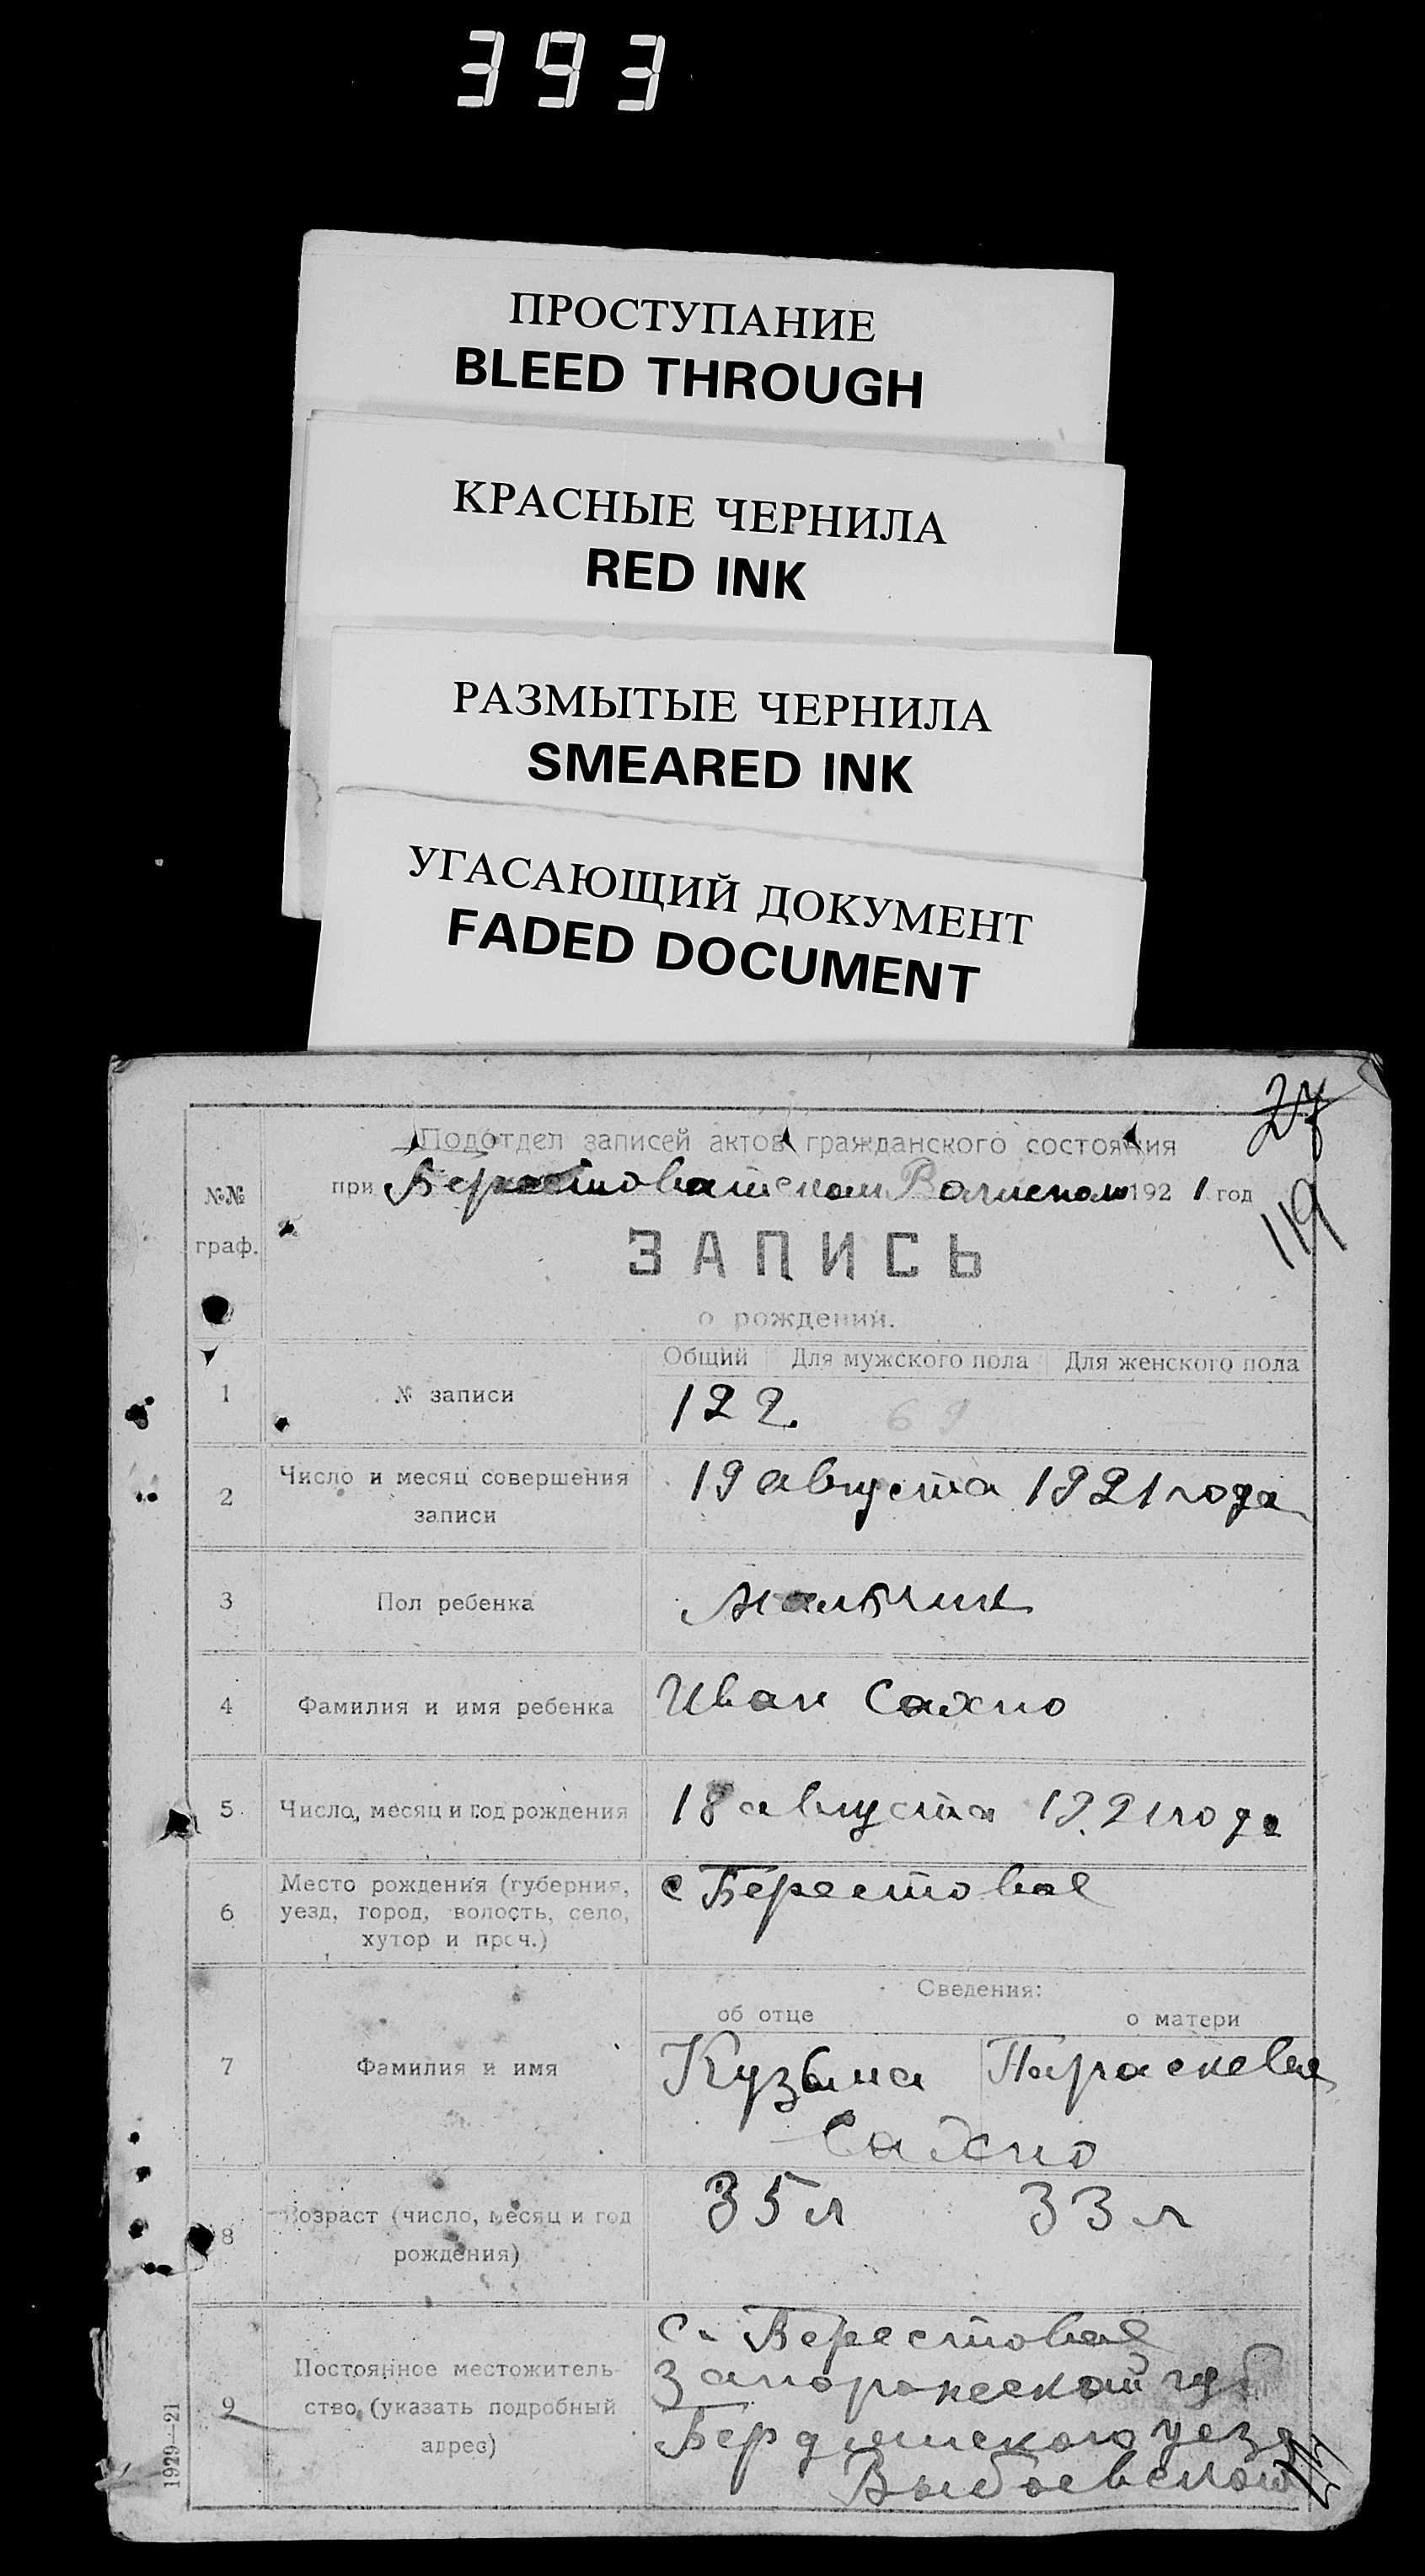 393
ПРОСТУПАНИЕ
BLEED THROUGH
КРАСНЫЕ ЧЕРНИЛА
RED INK
РАЗМЫТЫЕ ЧЕРНИЛА
SMEARED INK
УГАСАЮЩИЙ ДОКУМЕНТ
FADED DOCUMENT
27
Подотдел записей актов гражданского состояния
при Берестоватском 1921 год
119
№№ граф.
ЗАПИСЬ
о рождении.
Общий Для мужского пола Для женского пола
1 № записи 122. 69
2 Число и месяц совершения записи 19 августа 1921 года
3 Пол ребенка Мальчик
4 Фамилия и имя ребенка Иван Сахно
5 Число, месяц и год рождения 18 августа 1921 года
6 Место рождения (губерния, уезд, город, волость, село, хутор и проч.) с Берестовое
Сведения:
об отце о матери
7 Фамилия и имя Кузьма Параскева
Сахно
8 Возраст (число, месяц и год рождения) 35 л 33 л
9 Постоянное местожительство, (указать подробный адрес) с. Берестовое
Запорожской губ
Бердянского уезд
1929—21